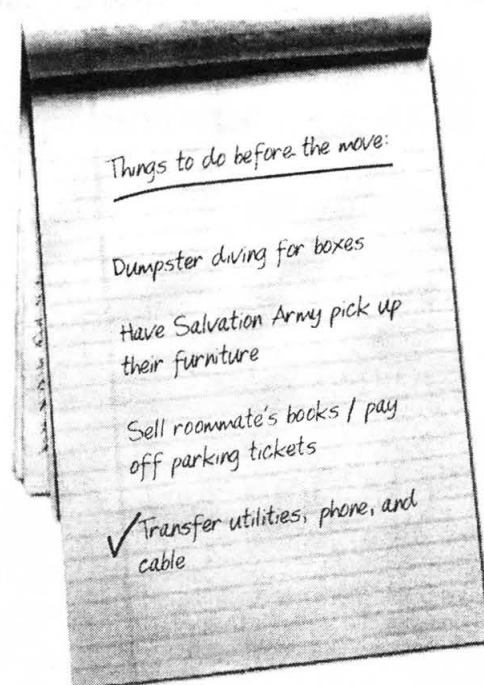 Things to do before the move:
Dumpster diving for boxes
Have Salvation Army pick up
their furniture
Sell roommate's books / pay
off parking tickets
✓ Transfer utilities, phone, and
cable